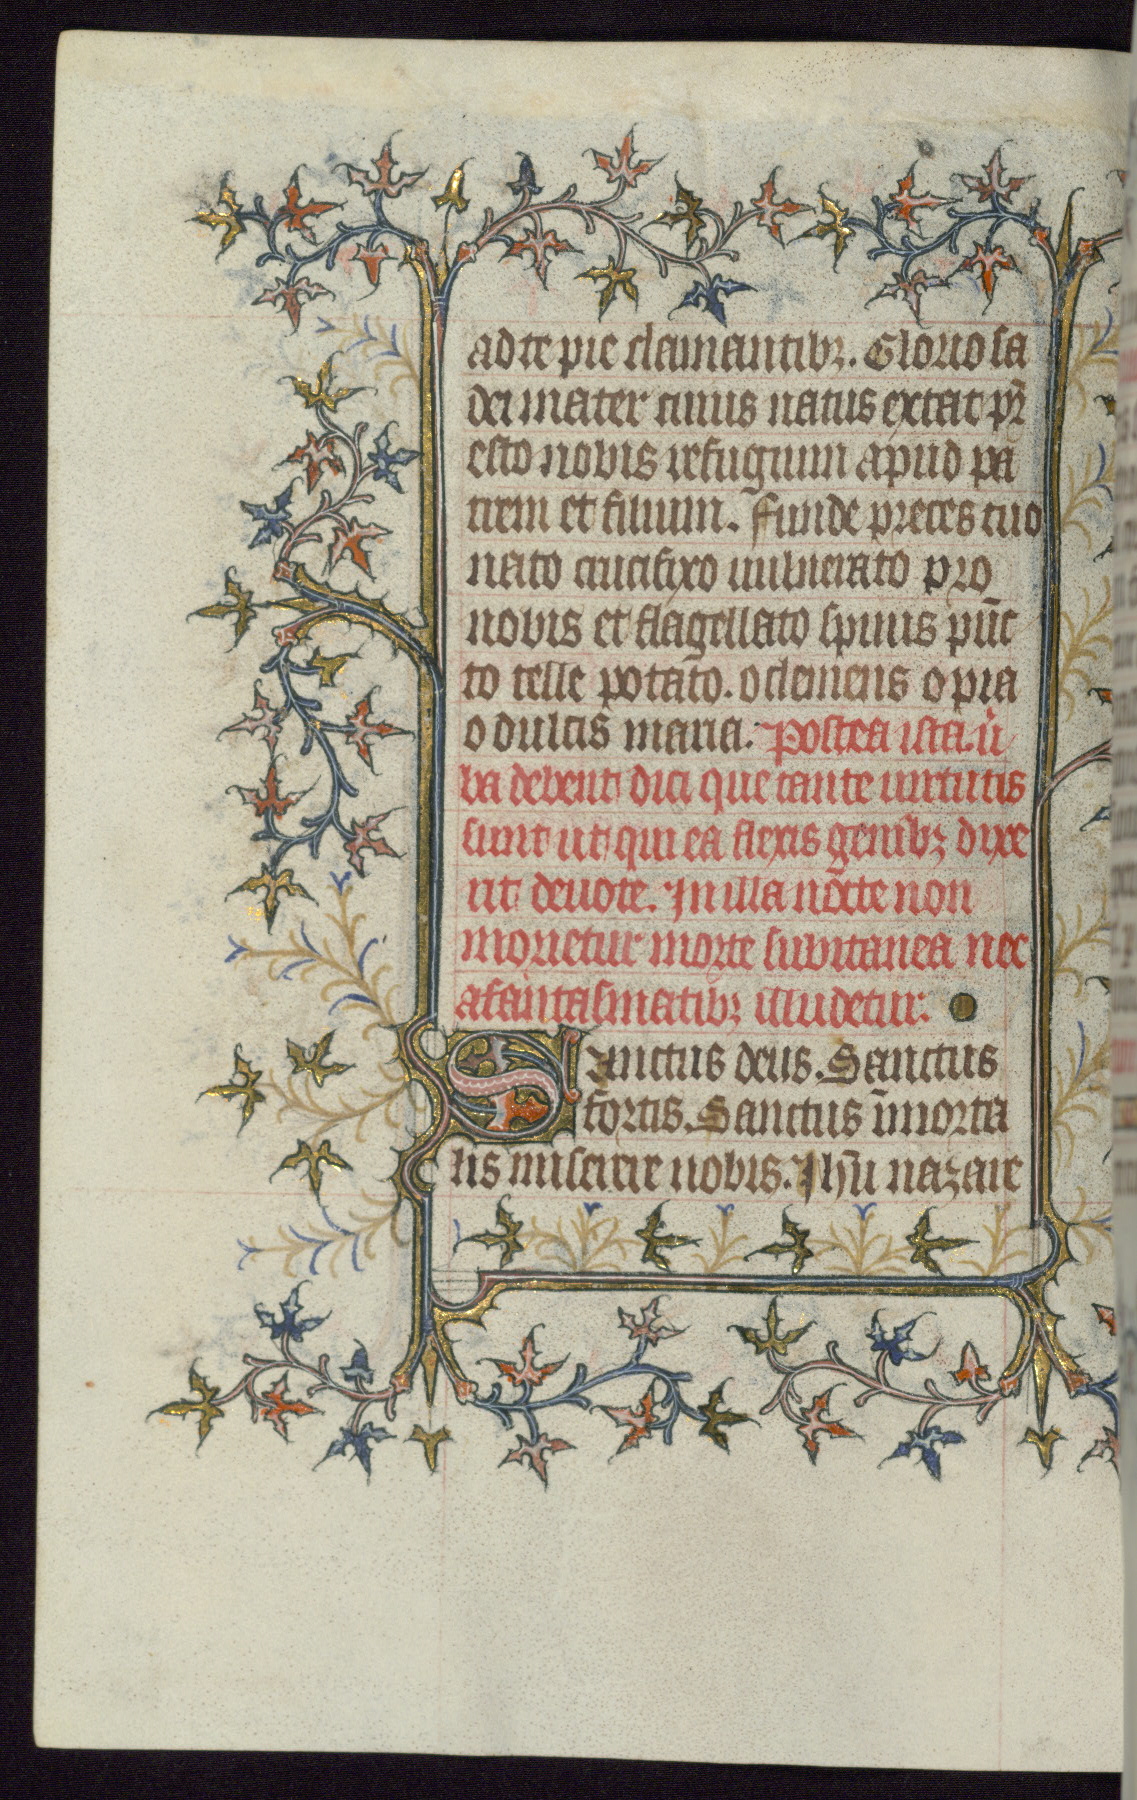 ad te pie clamantibꝫ. Gloriosa
dei mater cuius natus extat pr̃
esto nobis refugium apud pa
trem et filium. Funde preces tuo
nato crucifixo uulnerato pro
nobis et flagellato spinis pũc
to felle potato. o clemens o pia
o dulcis maria. Postea ista ũ
ba debent dici que tante uirtutis
sunt ut qui ea flexis genibꝫ dixe
rit deuote. In illa nocte non
morietur morte subitanea nec
a fantasmatibꝫ illudetur.
Sanctus deus. Sanctus
fortis. Sanctus ĩmorta
lis miserere nobis. Ihũ nazare